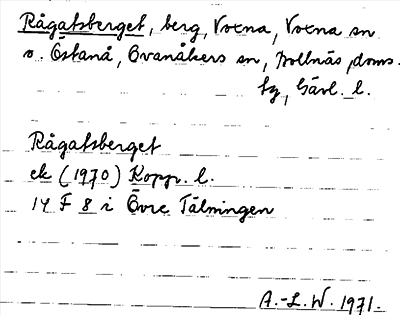 Rågatsberget, berg, Voxna, Voxna sn
o. Östanå, Ovanåkers sn, Bollnäs doms.
tg, Gävl. l.
Rågatsberget
ek (1970) Kopp. l.
14 F 8 i Övre Tälningen
A.-L.W. 1971.